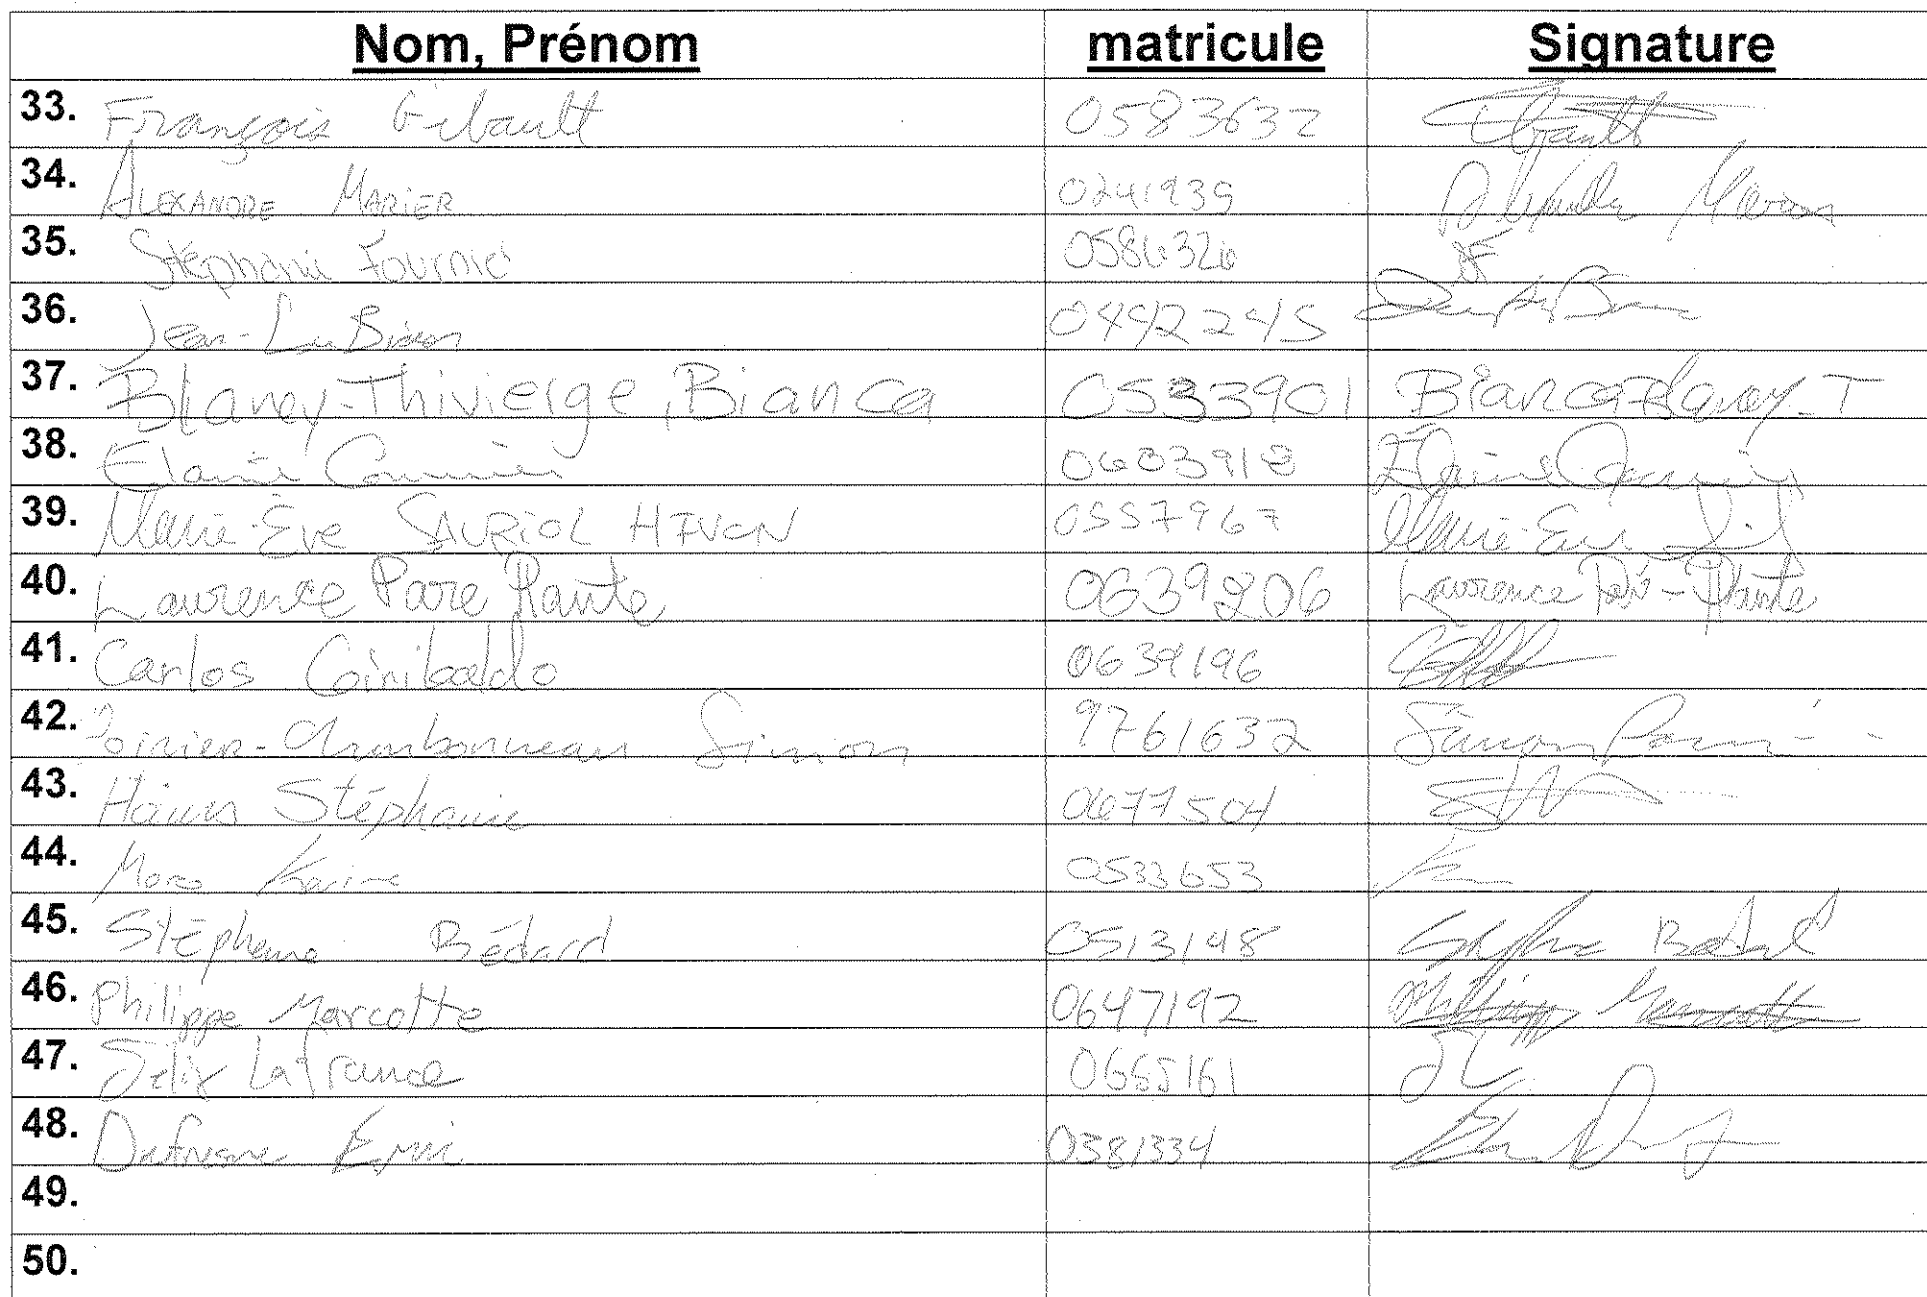 Nom, Prénom matricule Signature
33. François Gibault 0583632
34. ALEXANDRE MARIER 0241939
35. Stéphanie Fournie 0586326 SF
36. Jean-Luc 0492245
37. Blaney-Thivierge, Bianca 0533901 Bianca Blaney-T
38. 0603918
39. Marie-Ève SAURIOL HIVON 0557967 Marie-Eve
40. Laurence Paré Plante 0639206 Laurence Paré-Plante
41. Carlos Giribaldo 0639196
42. Poirier-Charbonneau Simon 9761632 Simon
43. Stéphanie 0677504
44. Karine 0533653
45. Stéphane Bédard 0513148 Bédard
46. Philippe Marcotte 0647192 Philippe Marcotte
47. Félix Lafrance 0655161
48. Dufresne 0381334
49.
50.